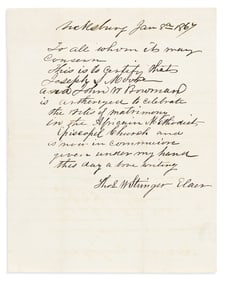 Vicksburg Jan 8th 1867
To all whom its may
Consern
This is to certify that
Joseph J Moore
and John W Bowman
is autherized to celebrate
the rites of matrimony
in the Affrican Methodist
Episcopel Church and
is now in commission
given under my hand
this day a bove writing
Thos W Stringer Elder